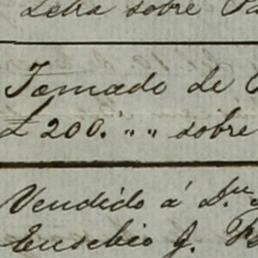 Letra sobre Pa
Tomado de
£ 200. " " sobre
Vendido á D.n
Eusebio G. Be